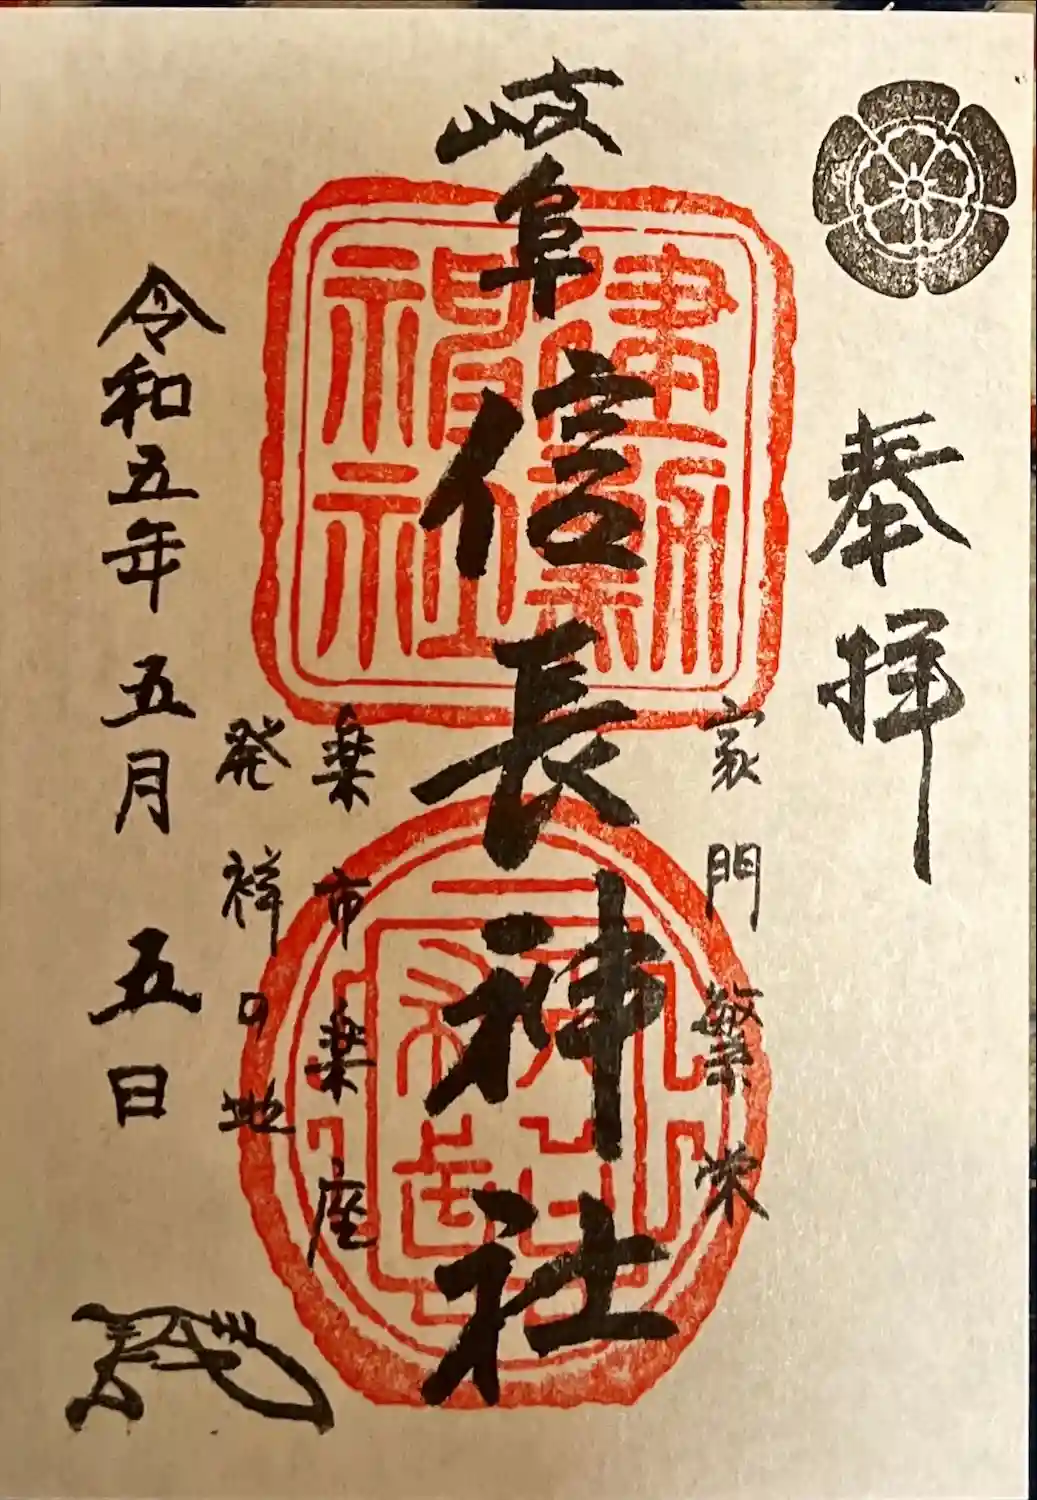 奉拝
家門繁栄
岐阜信長神社
建勲神社
楽市楽座
発祥の地
令和五年五月五日